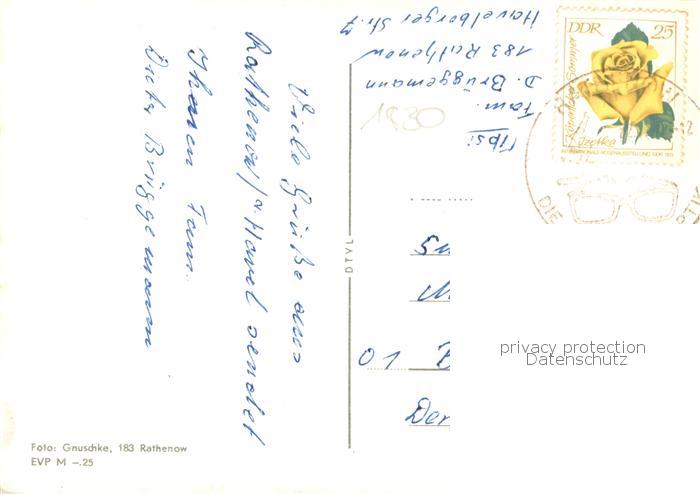 Viele Grüße aus
Rathenow/a. Havel sendet
Ihnen Fam.
Dieter Brüggemann
Abs:
Fam.
D. Brüggemann
183 Rathenow
Havelberger Str. 7
1830
DDR 25
Izetka
INTERNATIONALE ROSENAUSSTELLUNG 1972
DIE
DTVL
01
privacy protection
Datenschutz
Foto: Gnuschke, 183 Rathenow
EVP M –.25